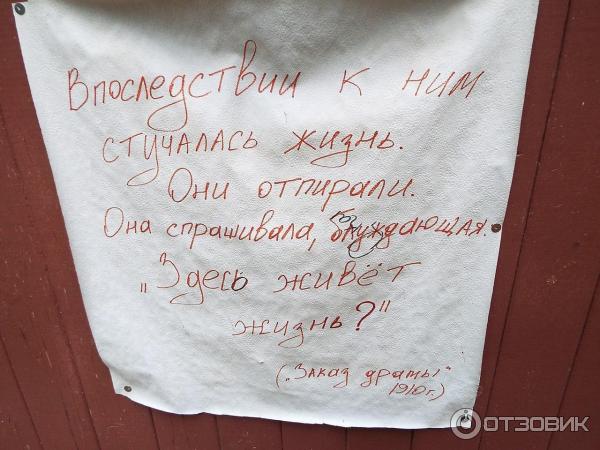 Впоследствии к ним
стучалась жизнь.
Они отпирали.
Она спрашивала, блуждающая.
„Здесь живёт
жизнь?"
(„Заказ драмы"
1910г.)
ОТЗОВИК